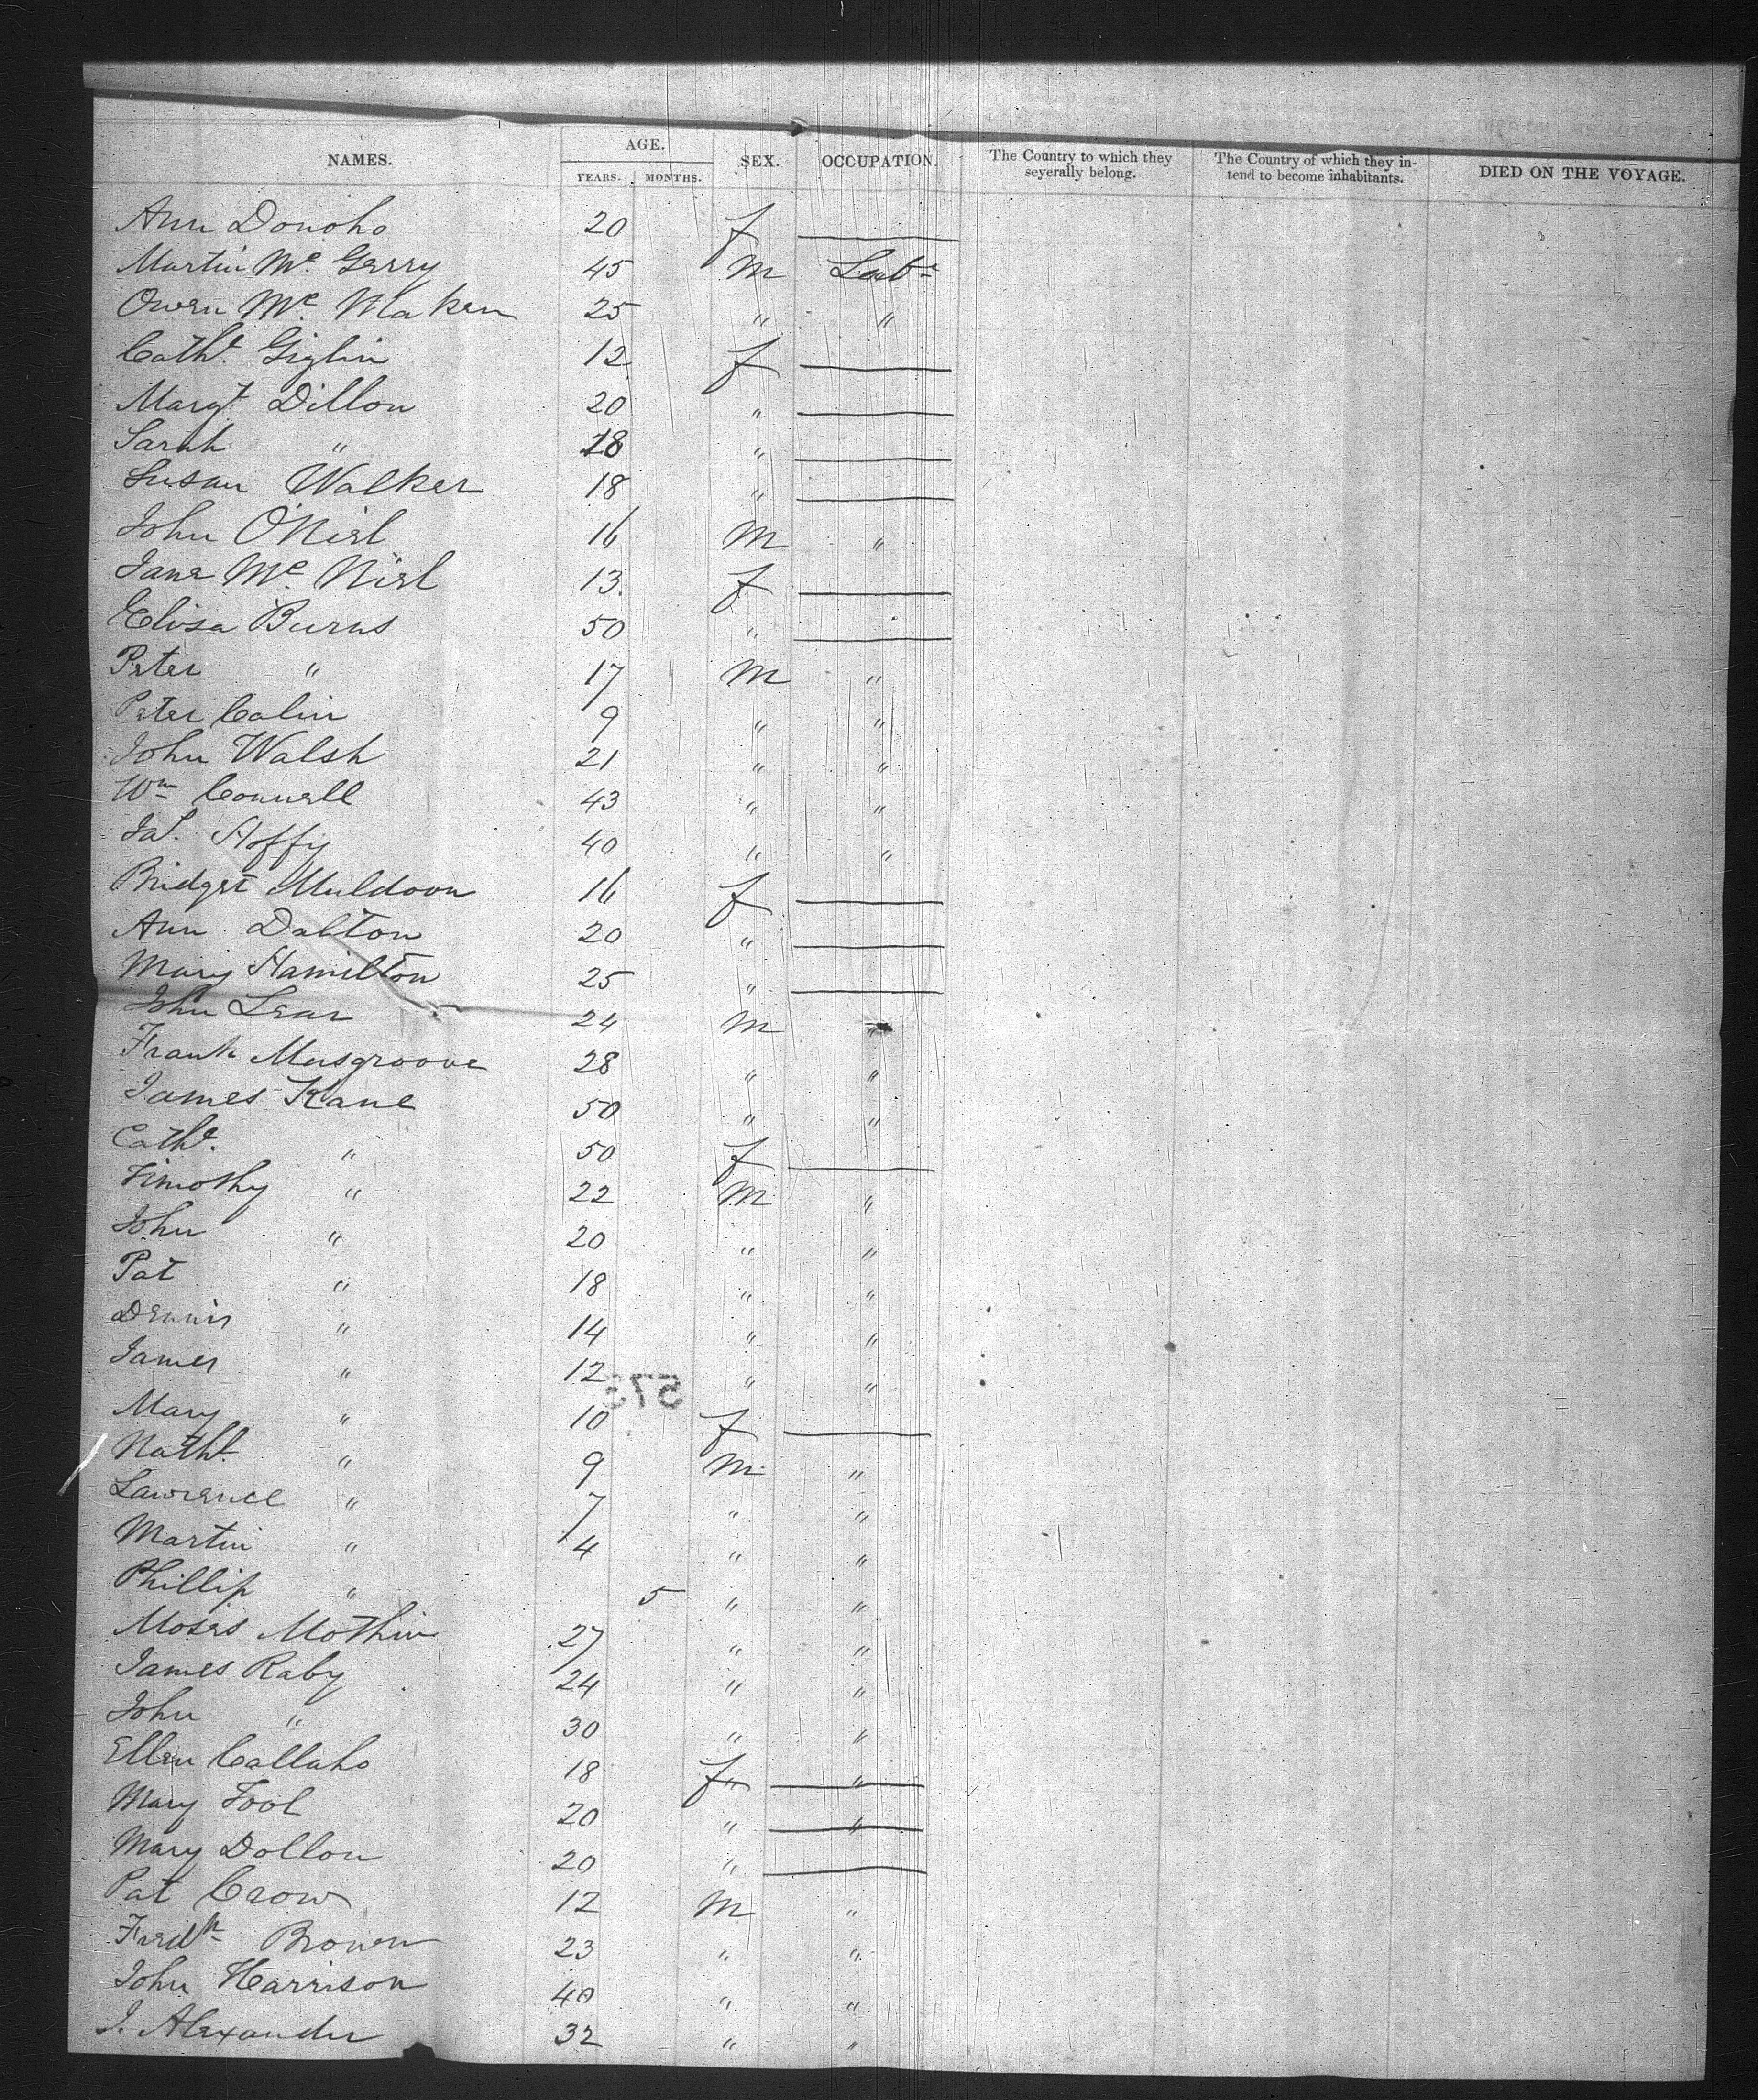 NAMES. AGE. SEX. OCCUPATION. The Country to which they seyerally belong. The Country of which they in-tend to become inhabitants. DIED ON THE VOYAGE.
YEARS. MONTHS.
Ann Donoho 20 f
Martin Mc Gerry 45 M Labr
Owen Mc Maken 25 " "
Cathe Giglin 12 f
Margt Dillon 20 "
Sarah " 18 "
Susan Walker 18 "
John O'Niel 16 M "
Jane Mc Niel 13. f
Elisa Burns 50 "
Peter " 17 M "
Peter Colin 9 " "
John Walsh 21 " "
Wm Connell 43 " "
Jas. Hoffy 40 " "
Bridget Muldoon 16 f
Ann Dalton 20 "
Mary Hamilton 25 "
John Lear 24 M "
Frank Musgroove 28 " "
James Kane 50 " "
Cathe. " 50 f
Timothy " 22 M "
John " 20 " "
Pat " 18 " "
Dennis " 14 " "
James " 12 " "
Mary " 10 f
Nathl. " 9 M "
Lawrence " 7 " "
Martin " 4 " "
Phillip " 5 " "
Moses Mothin 27 " "
James Raby 24 " "
John " 30 " "
Ellen Callaho 18 f "
Mary Tool 20 " "
Mary Dollon 20 "
Pat Crow 12 M "
Fredk Brown 23 " "
John Harrison 40 " "
J. Alexander 32 " "